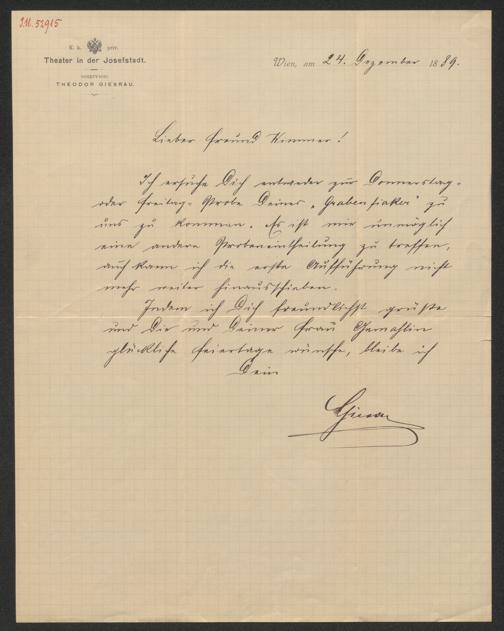 I.N. 52915
K. k. priv.
Theater in der Josefstadt.
DIRECTION:
THEODOR GIESRAU.
Wien, am 24. Dezember 1889.
Lieber Freund Kimmer!
Ich ersuche Dich entweder zur Donnerstag-
oder Freitag-Probe Deines „Grabenfiaker" zu
uns zu kommen. Es ist mir unmöglich
eine andere Probeneintheilung zu treffen,
auch kann ich die erste Aufführung nicht
mehr weiter hinausschieben.
Indem ich Dich freundlichst grüße
und Dir und Deiner Frau Gemahlin
glückliche Feiertage wünsche, bleibe ich
Dein
Giesrau